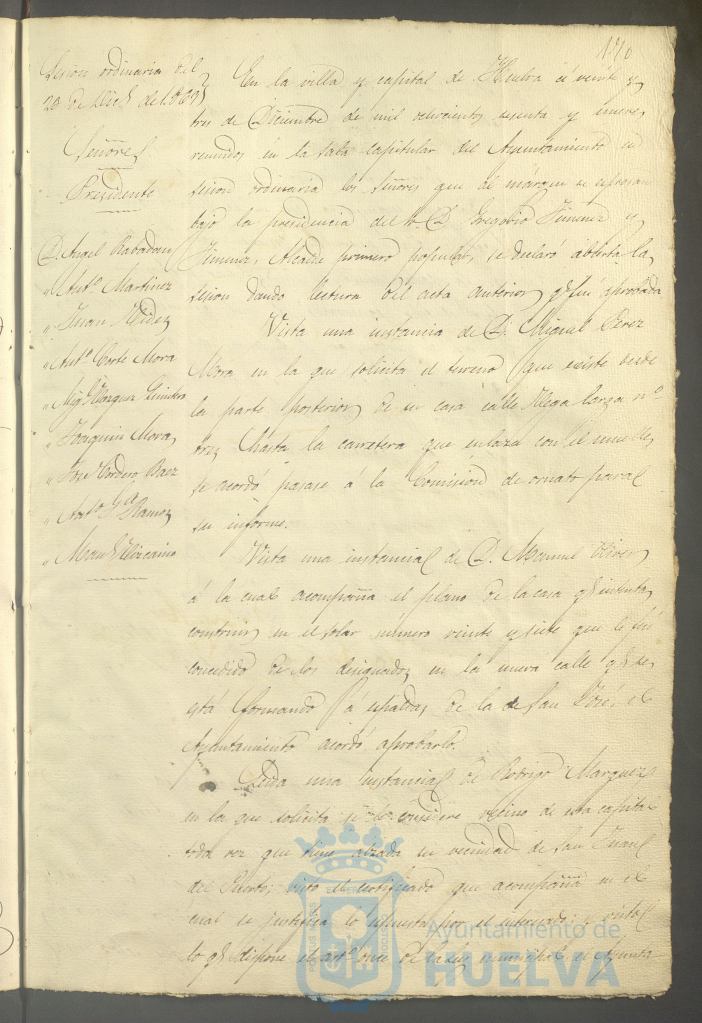 170
Sesion ordinaria del
23 de Dic.e de 1869
Señores
Presidente
D. Angel Rabadan
" Ant.o Martinez
" Juan
" Ant.o Corte Mora
" Mig.l Vazquez
" Joaquin Mora
" José Cordero Baez
" G.a Ramos
" Man.l Vizcaino
En la villa y capital de Huelva á veinte y
tres de Diciembre de mil ochocientos sesenta y nueve,
reunidos en la sala capitular del Ayuntamiento en
sesion ordinaria los Señores que al márgen se espresan
bajo la presidencia del Sr. D. Gregorio Jimenez y
Jimenez, Alcalde primero popular, se declaró abierta la
sesion dando lectura del acta anterior q.e fue aprobada
Vista una instancia de D. Miguel Perez
Mora en la que solicita el terreno que existe desde
la parte posterior de su casa calle Vega larga n.o
tres hasta la carretera que enlaza con el muelle,
se acordó pasase á la Comision de ornato para
su informe.
Vista una instancia de D. Manuel Oliver
á la cual acompaña el plano de la casa q.e intenta
construir en el solar número veinte y siete que le fué
concedido de los designados en la nueva calle q.e se
está formando á espaldas de la de San José, el
Ayuntamiento acordó aprobarlo.
Leida una instancia de Rodrigo Marquez
en la que solicita se le considere vecino de esta capital
toda vez que tiene alzada su vecindad de San Juan
del Puerto; visto el certificado que acompaña en el
cual se justifica lo espuesto por el interesado, y visto
lo q.e dispone el art.o once de la ley municipal, el Ayunta-
Ayuntamiento de
HUELVA